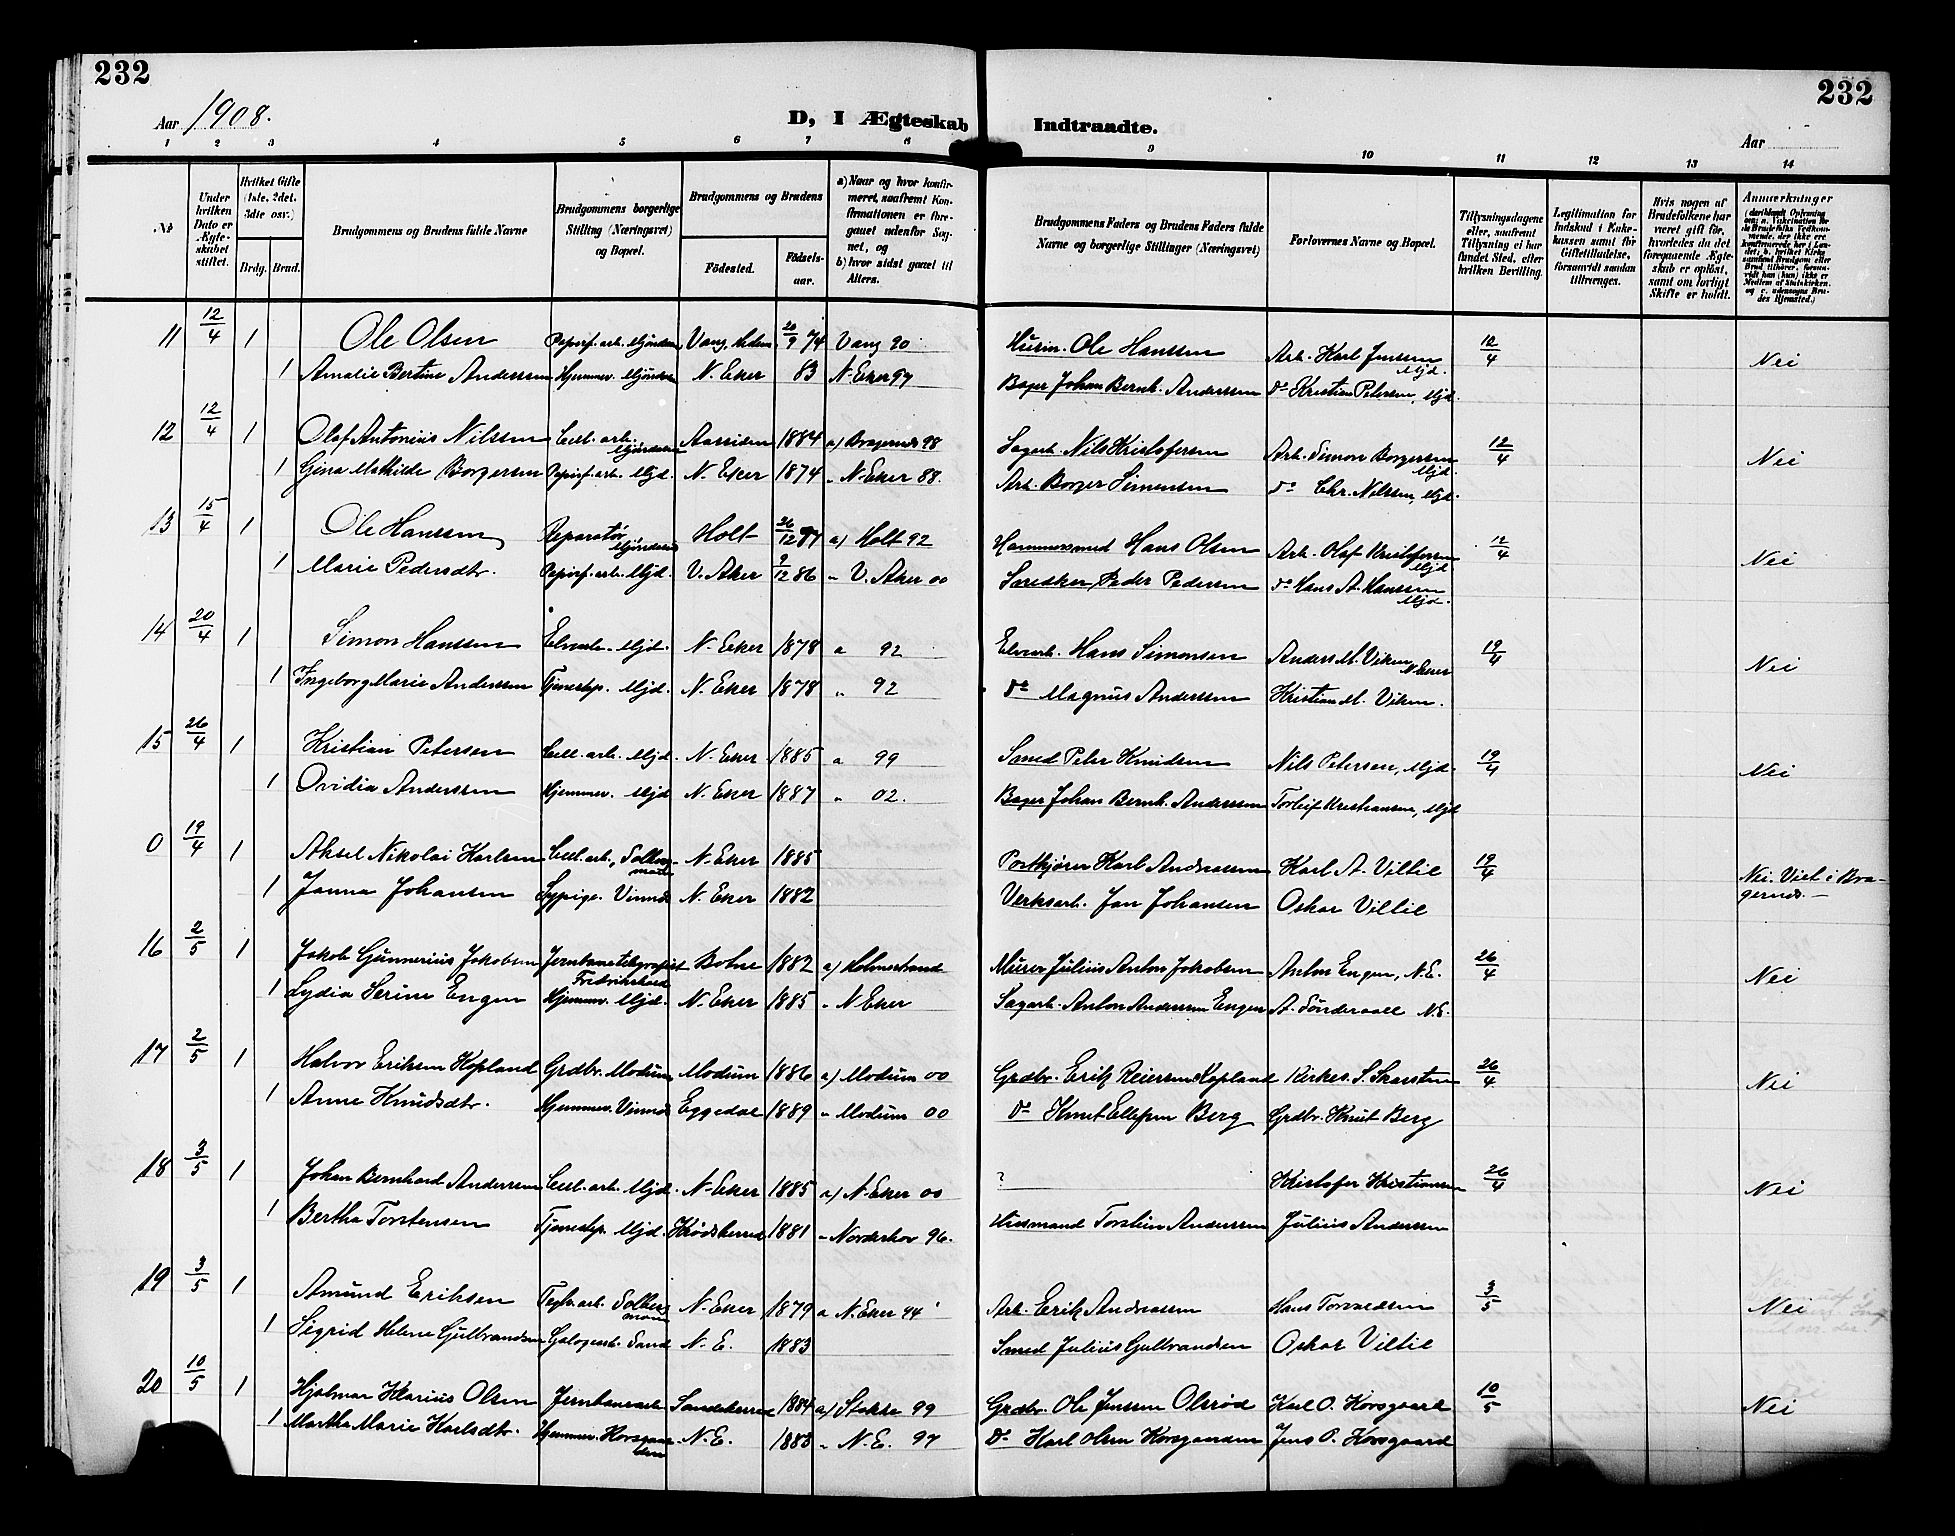 232
232
Aar 1908.
D, I Ægteskab Indtraadte.
Aar
1 2 3 4 5 6 7 8 9 10 11 12 13 14
No.
Under hvilken Dato er Ægteskabet stiftet.
Hvilket Gifte (1ste, 2det, 3die osv.)
Brdg. Brud.
Brudgommens og Brudens fulde Navne
Brudgommens borgerlige Stilling (Næringsvei) og Bopæl.
Brudgommens og Brudens
Fødested. Fødselsaar.
a) Naar og hvor konfirmeret, saafremt Konfirmationen er foregaaet udenfor Sognet, og
b) hvor sidst gaaet til Alters.
Brudgommens Faders og Brudens Faders fulde Navne og borgerlige Stillinger (Næringsvei)
Forlovernes Navne og Bopæl.
Tillysningsdagene eller, saafremt Tillysning ei har fundet Sted, efter hvilken Bevilling.
Legitimation for Indskud i Enkekassen samt for Giftetilladelse, forsaavidt saadan tiltrænges.
Hvis nogen af Brudefolkene har været gift før, hvorledes da det foregaaende Ægteskab er opløst, samt om lovligt Skifte er holdt.
Anmærkninger
11 12/4 1 Ole Olsen Papirf. arb. Mjøndalen Vang, Hedem. 20/9 74 Vang 90 Husm. Ole Hanssen Arb. Karl Jenssen Mjd. 12/4 Nei
1 Amalie Bertine Anderssen Hjemmev. Mjøndalen N. Eker 83 N. Eker 97 Bager Johan Bernh. Anderssen Do Kristian Petersen, Mjd.
12 12/4 1 Olaf Antonius Nilssen Cell. arb. Mjøndalen Aassiden 1884 a) Bragernæs 98 Sagarb. Nils Kristofersen Arb. Simon Borgersen Mjd. 12/4 Nei
1 Gina Mathilde Borgersen Papirf. arb. Mjd. N. Eker 1874 " N. Eker 88. Arb. Borger Simensen Do Chr. Nilssen, Mjd.
13 15/4 1 Ole Hanssen Reparatør Mjøndalen Holt 26/12 77 a) Holt 92 Hammersmed Hans Olsen Arb. Olaf Kristofersen Mjd. 12/4 Nei
1 Marie Pedersdtr. Papirf. arb. Mjd. V. Aker 9/12 86 " V. Aker 00 Snedker Peder Pedersen Do Hans A. Hanssen Mjd.
14 20/4 1 Simon Hanssen Elvearb. Mjd. N. Eker 1878 a 92 Elvearb. Hans Simonsen Anders M. Viken N. Eker 19/4 Nei
1 Ingeborg Marie Anderssen Tjenestep. Mjd. N. Eker 1878 " 92 Do Magnus Anderssen Kristian M. Viken.
15 26/4 1 Kristian Petersen Cell. arb. Mjd. N. Eker 1885 a 99 Smed Peter Knudsen Nils Petersen, Mjd. 19/4 Nei
1 Ovidia Anderssen Hjemmev. Mjd N. Eker 1887 " 02. Bager Johan Bernh. Anderssen Torleif Kristiansen, Mjd
0 19/4 1 Aksel Nikolai Karlsen Cell. arb., Solbergmoen N. Eker 1885 Postkjører Karl Andreassen Karl A. Villie 19/4 Nei. Viet i Bragernæs.
1 Janna Johansen Sypige. Vinnes N. Eker 1882 Verksarb. Jan Johansen Oskar Villie
16 2/5 1 Jakob Gunnerius Jakobsen Jernbanetelegrafist Fredrikstad Botne 1882 a) Holmestrand Murer Julius Anton Jakobsen Anton Engen, N.E. 26/4 Nei
1 Lydia Serine Engen Hjemmev. Mjd. N. Eker 1885 " N. Eker Sagarb. Anton Anderssen Engen A. Søndervall N.E.
17 2/5 1 Halvor Eriksen Kopland Grdbr. Modum Modum 1886 a) Modum 00 Grdbr. Erik Reiersen Kopland Kirkes. S. Skarsten 26/4 Nei
1 Anne Knudsdtr. Hjemmev. Vinnes Eggedal 1889 " Modum 00 Do Knut Ellefsen Berg Grdbr. Knut Berg
18 3/5 1 Johan Bernhard Anderssen Cell. arb. Mjd. N. Eker 1885 a) N. Eker 00 ? Kristofer Kristiansen 26/4 Nei
1 Bertha Torstensen Tjenestep. Mjd. Krødsherred 1881 " Norderhov 96. Husmand Torstein Anderssen Julius Anderssen
19 3/5 1 Amund Eriksen Teglv. arb. Solbergmoen N. Eker 1879 a N. Eker 94 Arb. Erik Andreassen Hans Torvaldsen 3/5 Nei
1 Sigrid Helene Gulbrandsen Sand N.E. 1883 Smed Julius Gulbrandsen Oskar Villie
20 10/5 1 Hjalmar Klarius Olsen Jernbanearb. Sandeherred 1884 a) Stokke 99 Grdbr. Ole Jenssen Olsrød Karl O. Korsgaard 10/5 Nei
1 Martha Marie Karlsdtr. Hjemmev. Korsgaarden N.E. 1883 " N.E. 97 Do Karl Olsen Korsgaarden Jens O. Korsgaard